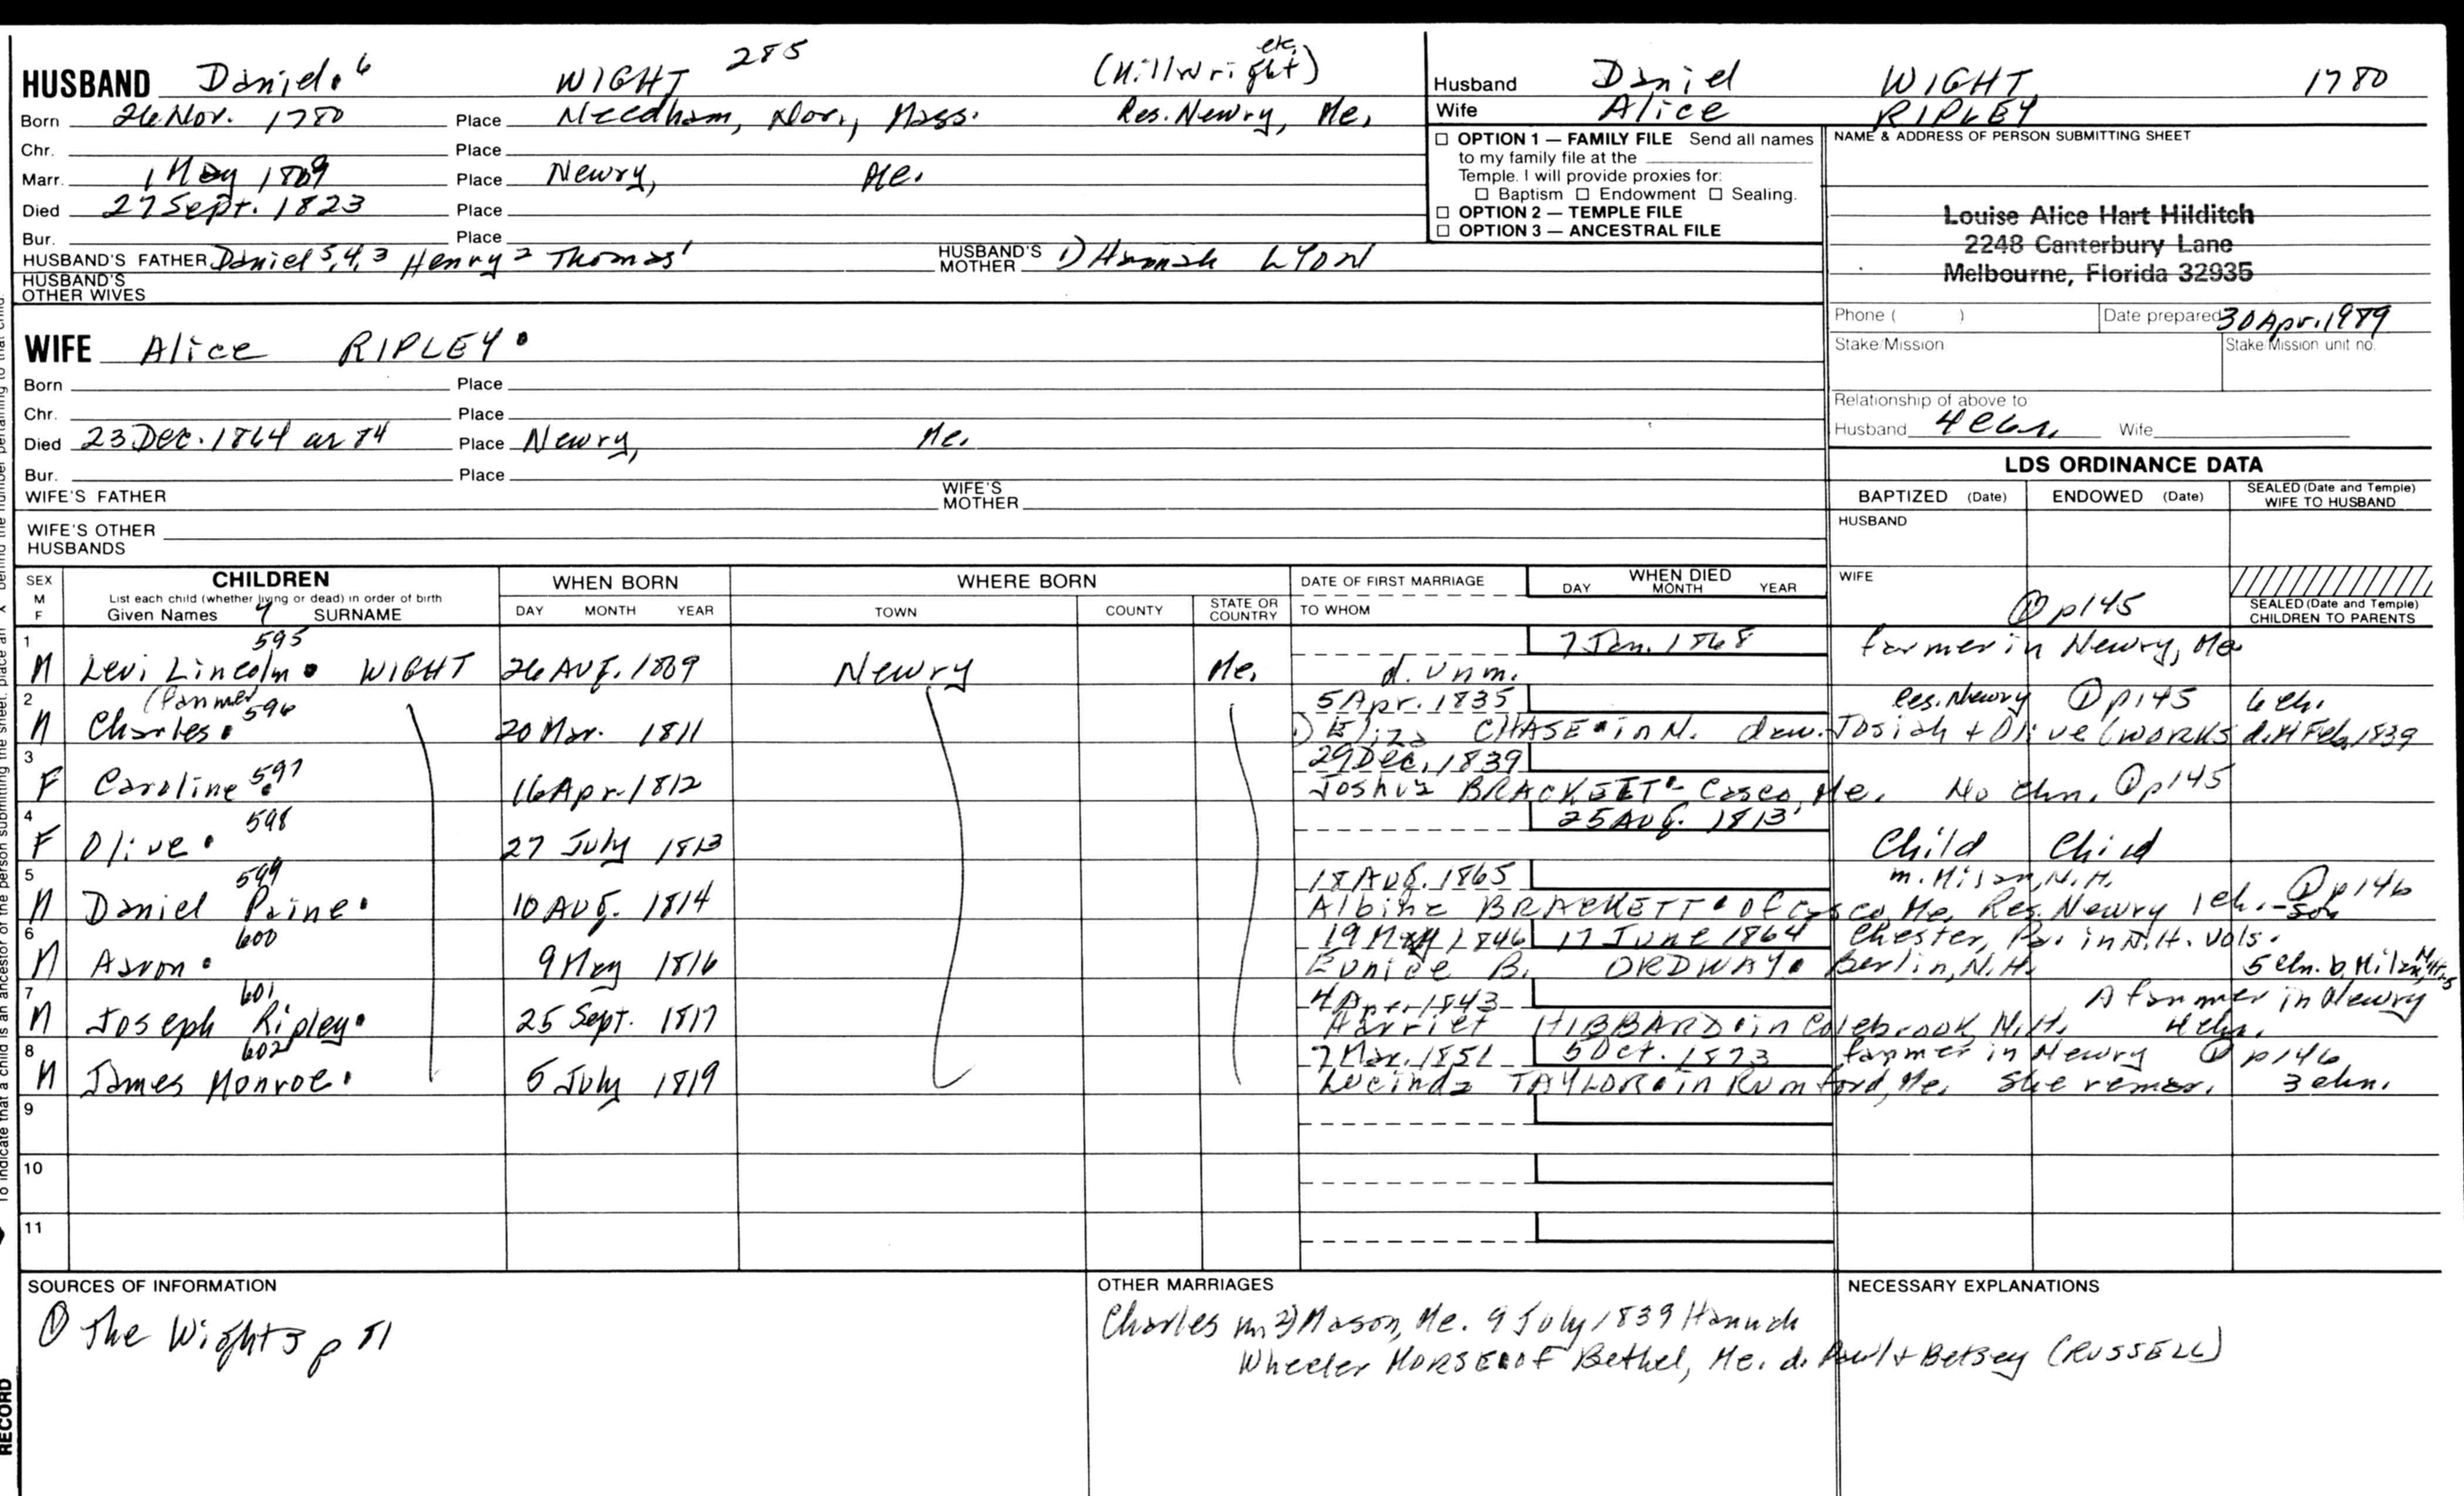 HUSBAND Daniel. 6 WIGHT 285 (Millwright) etc.
Born 26 Nov. 1780 Place Needham, Nor., Mass. Res. Newry, Me.
Chr. Place
Marr. 1 May 1809 Place Newry, Me.
Died 27 Sept. 1823 Place
Bur. Place
HUSBAND'S FATHER Daniel 5,4,3 Henry 2 Thomas 1 HUSBAND'S MOTHER 1) Hannah LYON
HUSBAND'S OTHER WIVES
Husband Daniel WIGHT, 1780
Wife Alice RIPLEY
☐ OPTION 1 — FAMILY FILE Send all names
to my family file at the
Temple. I will provide proxies for:
☐ Baptism ☐ Endowment ☐ Sealing.
☐ OPTION 2 — TEMPLE FILE
☐ OPTION 3 — ANCESTRAL FILE
NAME & ADDRESS OF PERSON SUBMITTING SHEET
Louise Alice Hart Hilditch
2248 Canterbury Lane
Melbourne, Florida 32935
Phone ( ) Date prepared 30 Apr. 1989
Stake/Mission Stake/Mission unit no.
Relationship of above to
Husband Wife
WIFE Alice RIPLEY.
Born Place
Chr. Place
Died 23 Dec. 1864 ae 84 Place Newry, Me.
Bur. Place
WIFE'S FATHER WIFE'S MOTHER
WIFE'S OTHER HUSBANDS
LDS ORDINANCE DATA
BAPTIZED (Date) ENDOWED (Date) SEALED (Date and Temple) WIFE TO HUSBAND
HUSBAND
WIFE
① p145
SEALED (Date and Temple) CHILDREN TO PARENTS
SEX M F
CHILDREN
List each child (whether living or dead) in order of birth
Given Names 7 SURNAME
WHEN BORN
DAY MONTH YEAR
WHERE BORN
TOWN COUNTY STATE OR COUNTRY
DATE OF FIRST MARRIAGE
TO WHOM
WHEN DIED
DAY MONTH YEAR
1 595 7 Jan. 1868 farmer in Newry, Me
M Levi Lincoln. WIGHT 26 Aug. 1809 Newry Me. d. unm.
2 (farmer 596 5 Apr. 1835 Res. Newry ① p145 6 ch.
M Charles. 20 Mar. 1811 1) Eliza CHASE. in N. dau. Josiah + Olive (WORKS d. 14 Feb. 1839
3 597 29 Dec. 1839
F Caroline. 16 Apr. 1812 Joshua BRACKETT. Casco, Me. No chn. ① p145
4 598 25 Aug. 1813
F Olive. 27 July 1813 Child Child
5 599 18 Aug. 1865 m. Milan, N.H. ① p146
M Daniel Paine. 10 Aug. 1814 Albina BRACKETT. of Casco, Me. Res. Newry 1 ch. - son
6 600 19 May 1846 17 June 1864 Chester, Pa. in N.H. Vols.
M Aaron. 9 May 1816 Eunice B. ORDWAY. Berlin, N.H. 5 chn. b. Milan, N.H.
7 601 4 Apr. 1843 A farmer in Newry
M Joseph Ripley. 25 Sept. 1817 Harriet HIBBARD. in Colebrook, N.H. 4 chn.
8 602 7 Mar. 1851 5 Oct. 1873 farmer in Newry ① p146
M James Monroe. 5 July 1819 Lucinda TAYLOR. in Rumford, Me. She remar. 3 chn.
9
10
11
SOURCES OF INFORMATION
① The Wights p 81
OTHER MARRIAGES
Charles m. 2) Mason, Me. 9 July 1839 Hannah
Wheeler MORSE. of Bethel, Me. d. Paul + Betsey (RUSSELL)
NECESSARY EXPLANATIONS
RECORD